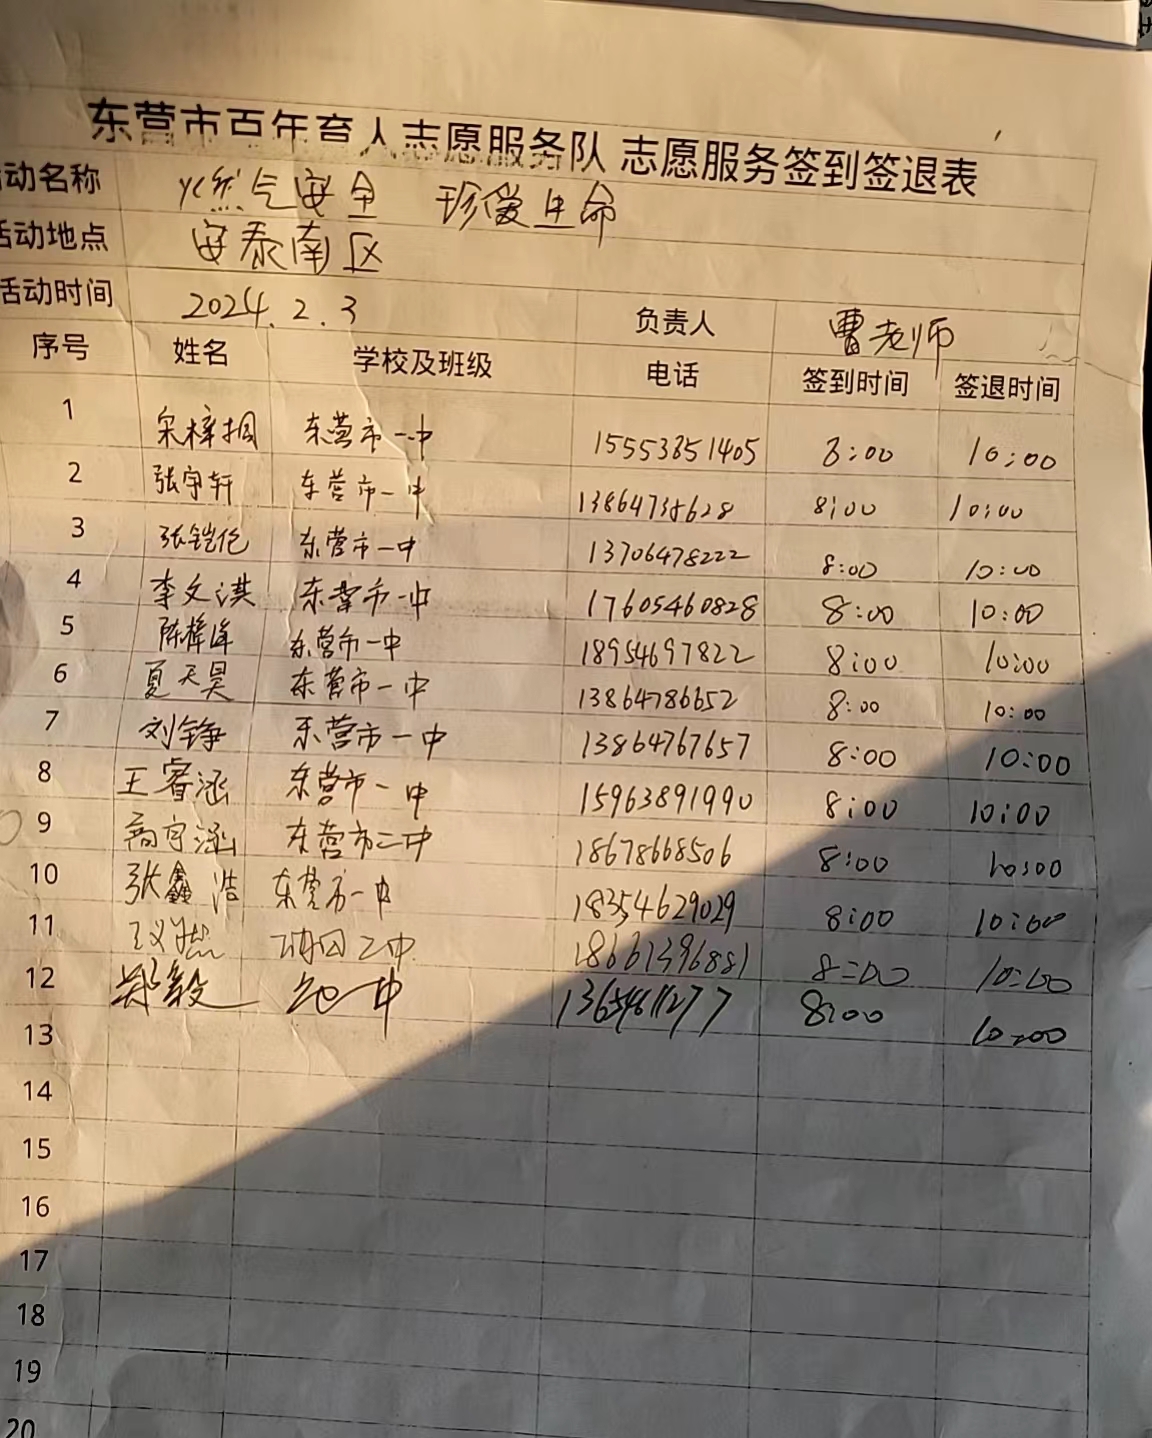 东营市百年育人志愿服务队 志愿服务签到签退表
活动名称 燃气安全 珍爱生命
活动地点 安泰南区
活动时间 2024.2.3 负责人 曹老师
序号 姓名 学校及班级 电话 签到时间 签退时间
1 宋梓桐 东营市一中 15553851405 8:00 10:00
2 张宇轩 东营市一中 13864738628 8:00 10:00
3 张铠伦 东营市一中 13706478222 8:00 10:00
4 李文淇 东营市一中 17605460828 8:00 10:00
5 陈梓峰 东营市一中 18954697822 8:00 10:00
6 夏天昊 东营市一中 13864786652 8:00 10:00
7 刘铮 东营市一中 13864767657 8:00 10:00
8 王睿涵 东营市一中 15963891990 8:00 10:00
9 商宇涵 东营市二中 18678668506 8:00 10:00
10 张鑫浩 东营市一中 18354629029 8:00 10:00
11 二中 18661396881 8:00 10:00
12 郑毅 一中 8:00 10:00
13
14
15
16
17
18
19
20